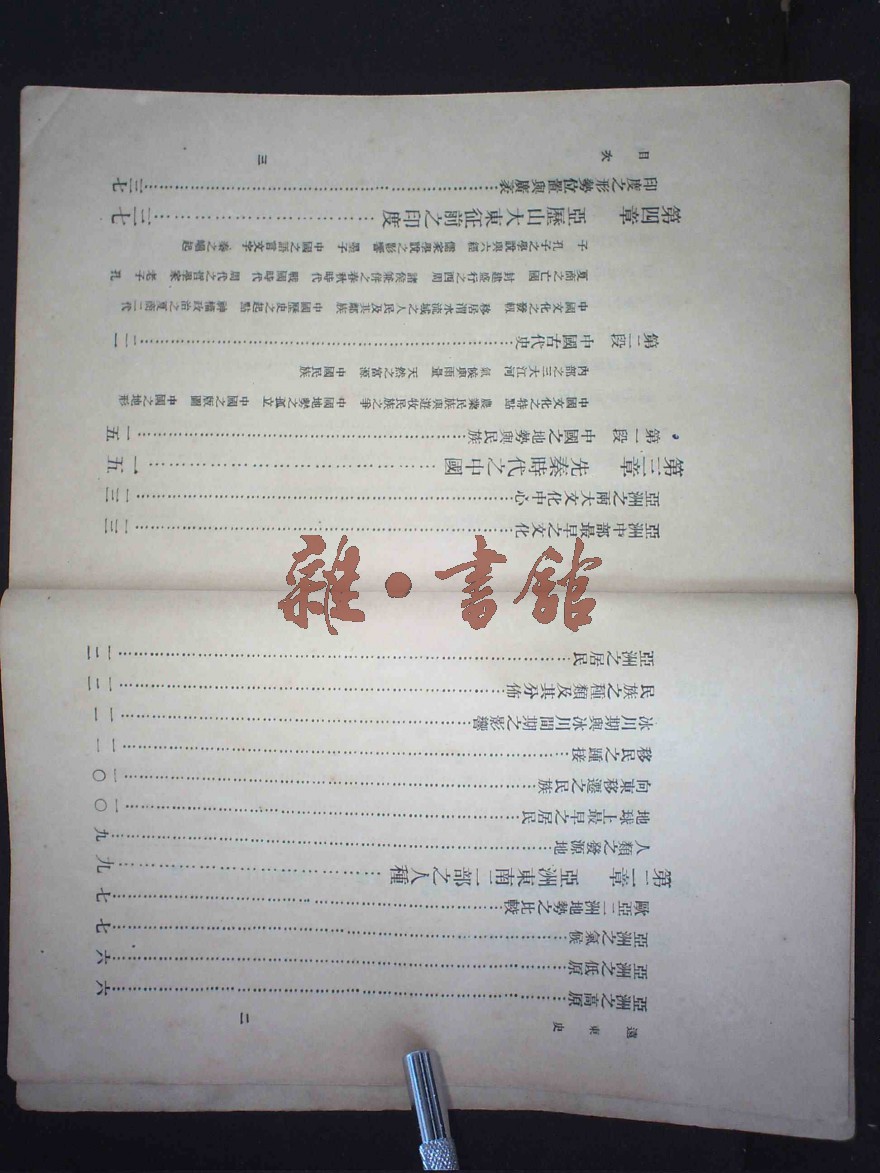 遠東史
二
亞洲之高原……六
亞洲之低原……六
亞洲之氣候……七
歐亞二洲地勢之比較……七
第二章　亞洲東南二部之人種……九
人類之發源地……九
地球上最早之居民……一〇
向東移遷之民族……一〇
移民之踵接……一一
冰川期與冰川間期之影響……一一
民族之種類及其分佈……一二
亞洲之居民……一二
亞洲中部最早之文化……一三
亞洲之兩大文化中心……一三
第三章　先秦時代之中國……一五
第一段　中國之地勢與民族……一五
中國文化之特點　農業民族與遊牧民族之爭　中國地勢之孤立　中國之版圖　中國之地形
內部之三大江河　氣候與雨量　天然之富源　中國民族
第二段　中國古代史……二一
中國文化之發軔　移居渭水流域之人民及其鄰族　中國歷史之起點　神權政治之夏商二代
夏商亡國　封建盛行之西周　諸侯兼併之春秋時代　戰國時代　周代之哲學家　老子　孔
子　孔子之學說與六經　儒家學說之影響　墨子　中國之語言文字　秦之崛起
第四章　亞歷山大東征前之印度……三七
印度之形勢位置與廣袤……三七
目次
三
雜·書館